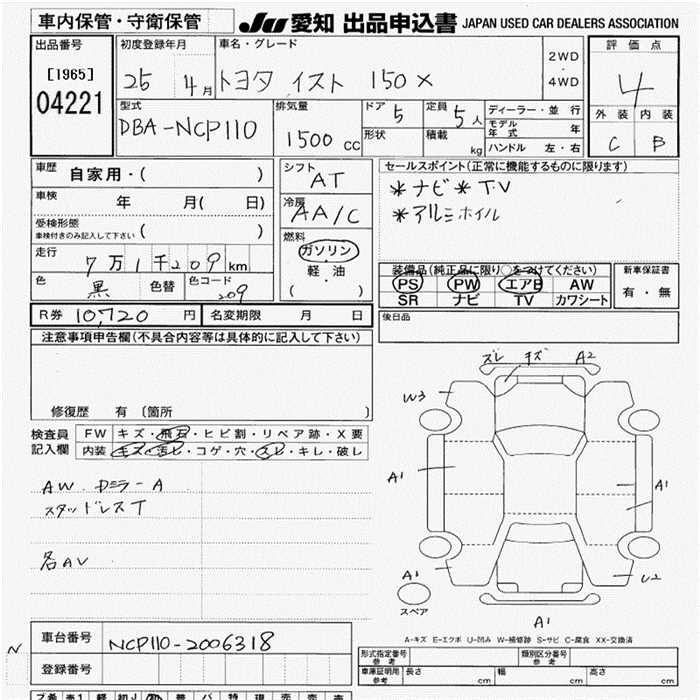 車内保管・守衛保管
JU 愛知 出品申込書 JAPAN USED CAR DEALERS ASSOCIATION
出品番号
[1965]
04221
初度登録年月
25 4月
車名・グレード
トヨタ イスト 150X
2WD
・
4WD
評価点
4
外装 内装
C B
型式
DBA-NCP110
排気量
1500 cc
ドア 5
形状
定員 5人
積載 kg
ディーラー・並行
モデル年式 年
ハンドル 左・右
車歴 自家用・( )
車検 年 月( 日)
受検形態
車検付きのみ記入して下さい ( )
走行 7万1千209km
色 黒 色替 色コード 209
シフト AT
冷房 AA/C
燃料
ガソリン
・
軽・油
( )
セールスポイント(正常に機能するものに限ります)
*ナビ*TV
*アルミホイル
装備品(純正品に限り○をつけてください)
PS PW エアB AW
SR ナビ TV カワシート
新車保証書
有・無
R券 10,720 円 名変期限 月 日
後日品
注意事項申告欄(不具合内容等は具体的に記入して下さい)
修復歴 有 [箇所 ]
検査員記入欄
FW キズ・飛石・ヒビ割・リペア跡・X要
内装 キズ・汚レ・コゲ・穴・スレ・キレ・破レ
AW.Dミラ-A
スタッドレスT
各AV
ズレ キズ A2
W3
A1
A1
A1
U2
スペア
A1
A-キズ E-エクボ U-凹み W-補修跡 S-サビ C-腐食 XX-交換済
N
車台番号 NCP110-2006318
登録番号
形式指定番号 参考
類別区分番号 参考
車庫証明用 参考 長さ cm 幅 cm 高さ cm